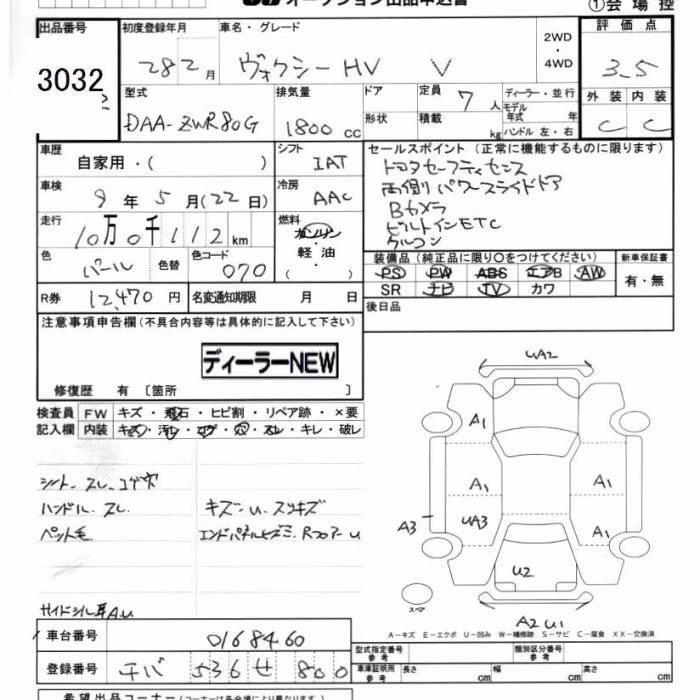 オークション出品申込書
①会場控
出品番号
3032
初度登録年月
28 2 月
車名・グレード
ヴォクシー HV V
2WD
・
4WD
評価点
3.5
型式
DAA-ZWR80G
排気量
1800 cc
ドア
形状
定員 7 人
積載 kg
ディーラー・並行
モデル
年式 年
ハンドル 左・右
外装 内装
C C
車歴
自家用・( )
シフト
IAT
セールスポイント (正常に機能するものに限ります)
トヨタセーフティセンス
両側パワースライドドア
Bカメラ
ビルトインETC
クルコン
車検
9 年 5 月(22 日)
冷房
AAC
走行
10万0千112 km
燃料
ガソリン
・
軽・油
( ・ )
色
パール
色替
色コード
070
装備品 (純正品に限り○をつけてください)
PS PW ABS エアB AW
SR ナビ TV カワ
新車保証書
有・無
R券 12,470 円
名変通知期限 月 日
後日品
注意事項申告欄 (不具合内容等は具体的に記入して下さい)
ディーラーNEW
修復歴 有 〔箇所 〕
検査員
記入欄
FW キズ・飛石・ヒビ割・リペア跡・×要
内装 キズ・汚レ・コゲ・穴・スレ・キレ・破レ
シート スレ コゲ穴
ハンドル スレ
ペット毛
キズ U スリキズ
エンドパネルヒズミ Rフロアー U
サイドシル耳 AU
UA2
A1
A1
A1
A3
UA3
A1
U2
スペア
A2 U1
A-キズ E-エクボ U-凹み W-補修跡 S-サビ C-腐食 XX-交換済
車台番号 0168460
登録番号 千バ 536 せ 800
型式指定番号
参考
類別区分番号
参考
車庫証明用
参考
長さ cm 幅 cm 高さ cm
希望出品コーナー